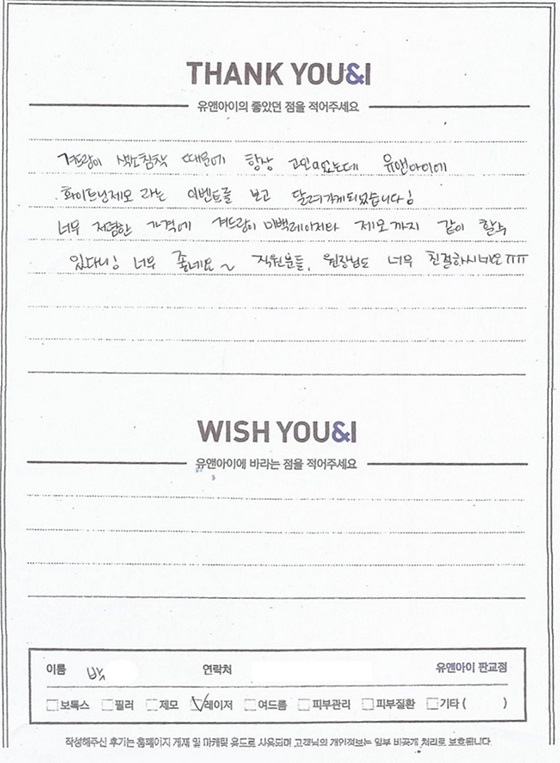 THANK YOU&I
유앤아이의 좋았던 점을 적어주세요
겨드랑이 색소침착 때문에 항상 고민이었는데 유앤아이에
화이트닝제모 라는 이벤트를 보고 달려가게되었습니다!
너무 저렴한 가격에 겨드랑이 미백레이저랑 제모까지 같이 할수
있다니! 너무 좋네요~ 직원분들, 원장님도 너무 친절하시네요ㅠㅠ
WISH YOU&I
유앤아이에 바라는 점을 적어주세요
이름 박 연락처 유앤아이 판교점
보톡스 필러 제모 레이저 여드름 피부관리 피부질환 기타 ( )
작성해주신 후기는 홈페이지 게재 및 마케팅 용도로 사용되며 고객님의 개인정보는 일부 비공개 처리로 보호됩니다.